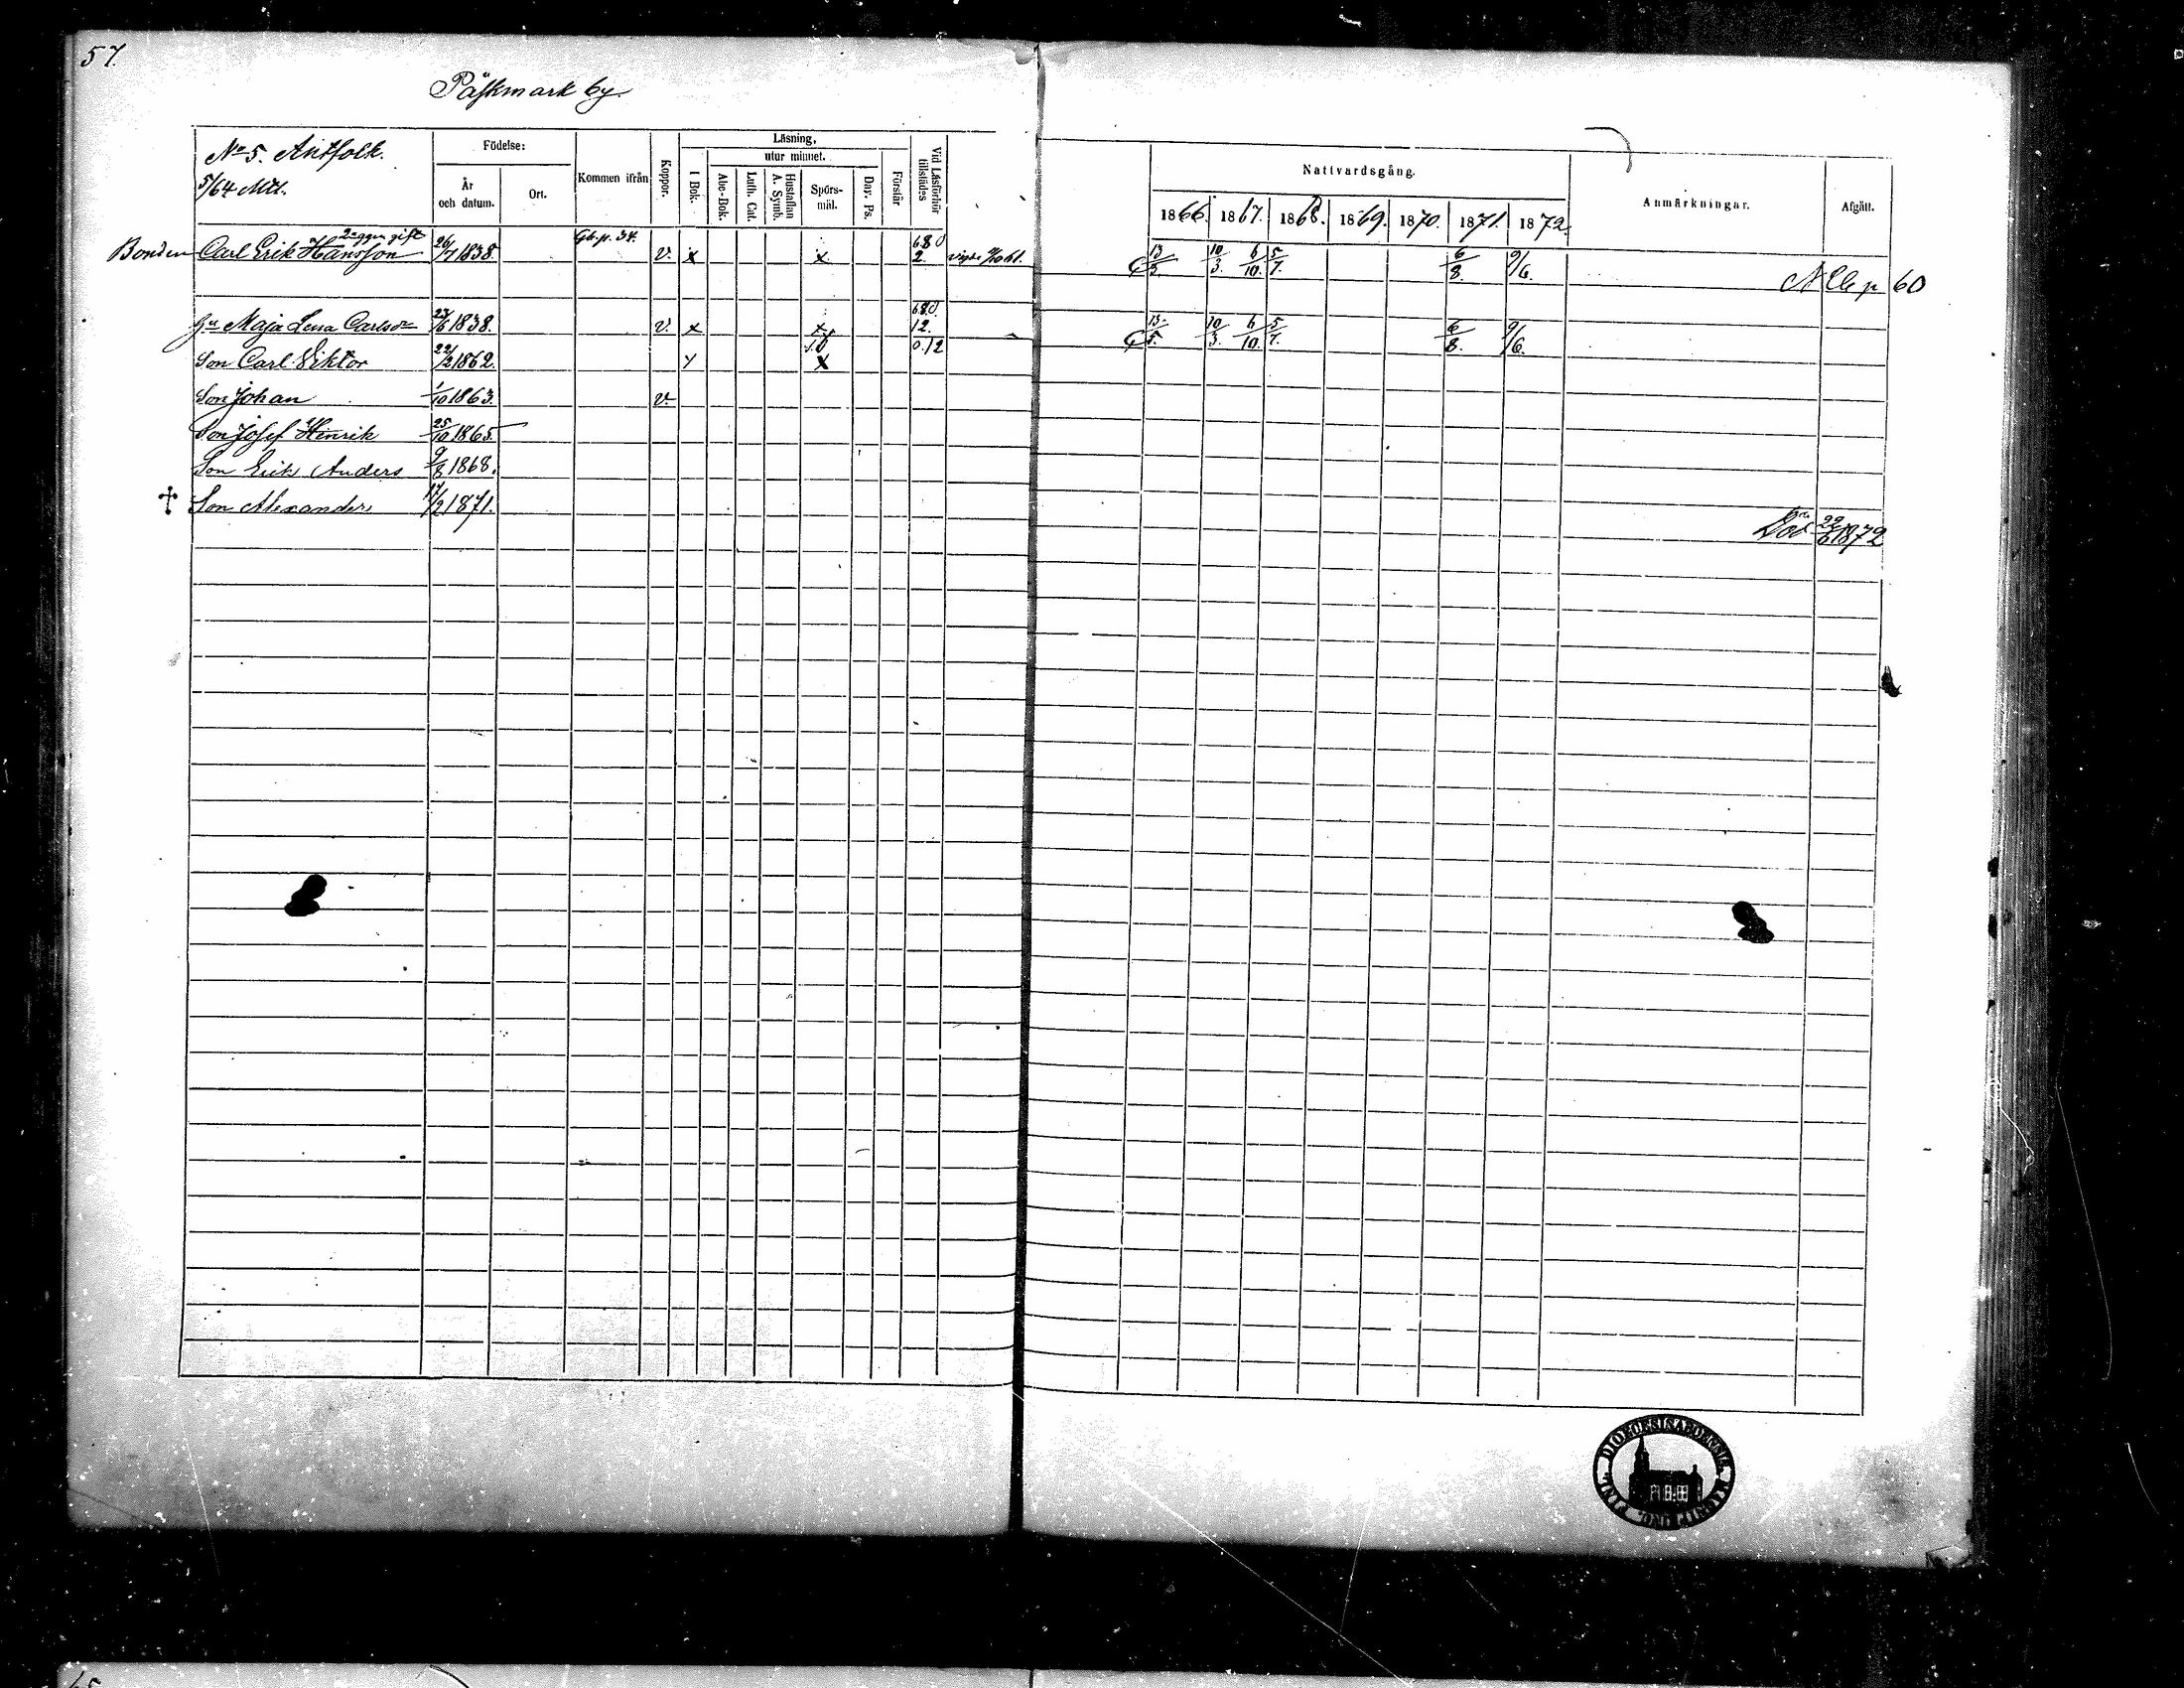 57.
Påskmark by
No 5. Antfolk.
5/64 Mtl.
Födelse:
År och datum.
Ort.
Kommen ifrån
Koppor.
Läsning,
I Bok.
utur minnet.
Abc-Bok.
Luth. Cat.
Hustaflan A. Symb.
Spörs-mål.
Dav. Ps.
Förstår
Vid Läsförhör tillstädes
Nattvardsgång.
1866. 1867. 1868. 1869. 1870. 1871. 1872.
Anmärkningar.
Afgått.
2a ggn gift
Bonden Carl Erik Hansson 26/7 1838. Gb. p. 34. v. x x 680 2. 13/5. 10/3. 6/10. 5/7. 6/8. 9/6.
N Cb p 60
Hu Maja Lena Carlsdr 23/6 1838. v. x x 680. 12. 13/5. 10/3. 6/10. 5/7. 6/8. 9/6.
Son Carl Viktor 22/2 1862. x 0.12
Son Johan 1/10 1863. v.
Son Josef Henrik 25/10 1865.
Son Erik Anders 9/8 1868.
† Son Alexander 17/2 1871. Död 22/6 1872
DIOECESIS ABOENSIS